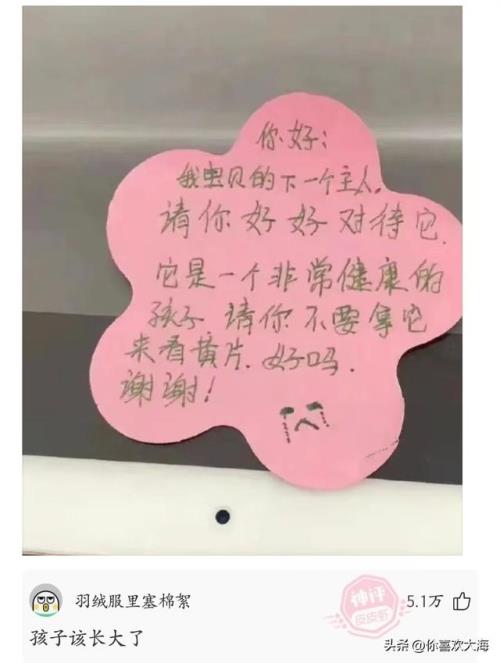 你好：
我宝贝的下一个主人，
请你好好对待它.
它是一个非常健康的
孩子 请你不要拿它
来看黄片.好吗.
谢谢！
羽绒服里塞棉絮
神评
皮皮虾
5.1万
孩子该长大了
头条 @你喜欢大海